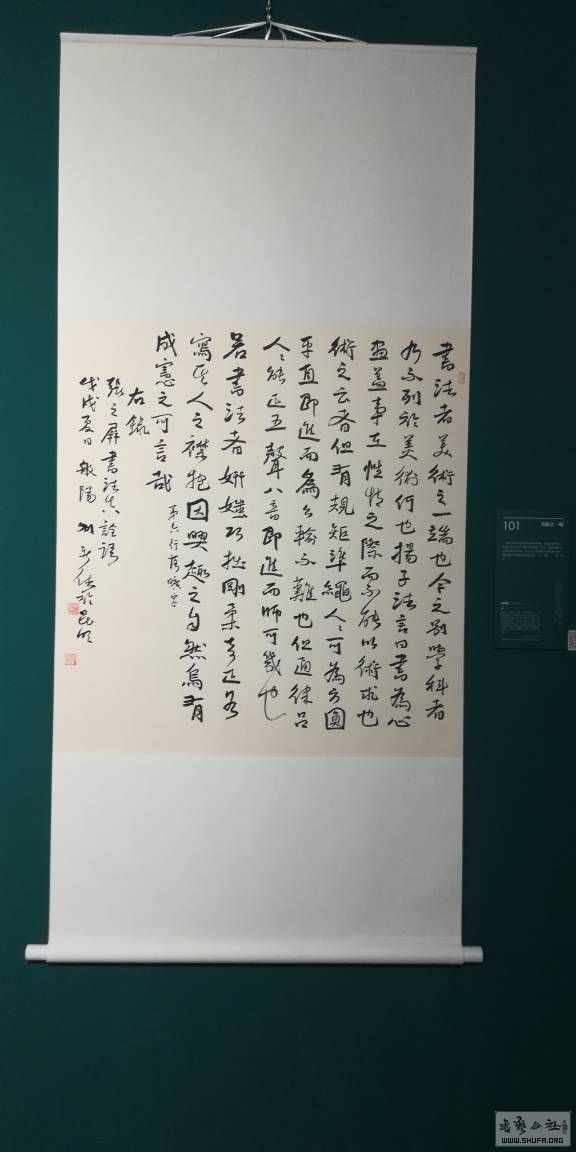 書法者美術之一端也今之別學科者
乃不列於美術何也揚子法言曰書為心
畫蓋事在性情之際而不能以術求也
術之云者但有規矩準繩人〻可為方圓
平直即進而為公輸不難也但通律呂
人〻能正五聲八音即進而師可幾也
若書法者妍媸巧拙剛柔奇正各
寫其人之襟抱因興趣之自然烏有
成憲之可言哉 第六行落曠字
右錄
張之屏書法真詮語
戊戌夏日般陽於昆明
101
WWW.SHUFA.ORG